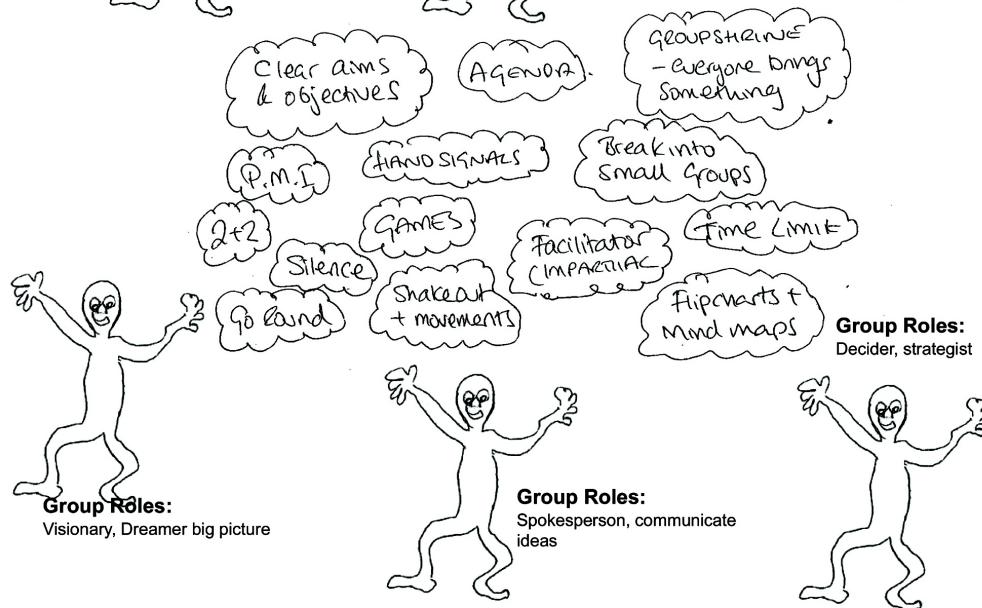 Clear aims
& objectives
AGENDA.
GROUPSHRINE
- everyone brings
something
P.M.I
HANDSIGNALS
Break into
small Groups
2+2
GAMES
Facilitator
(IMPARTIAL
Time Limit
Silence
Go Round
Shakeout
+ movements
Flipcharts +
Mind maps
Group Roles:
Decider, strategist
Group Roles:
Visionary, Dreamer big picture
Group Roles:
Spokesperson, communicate
ideas